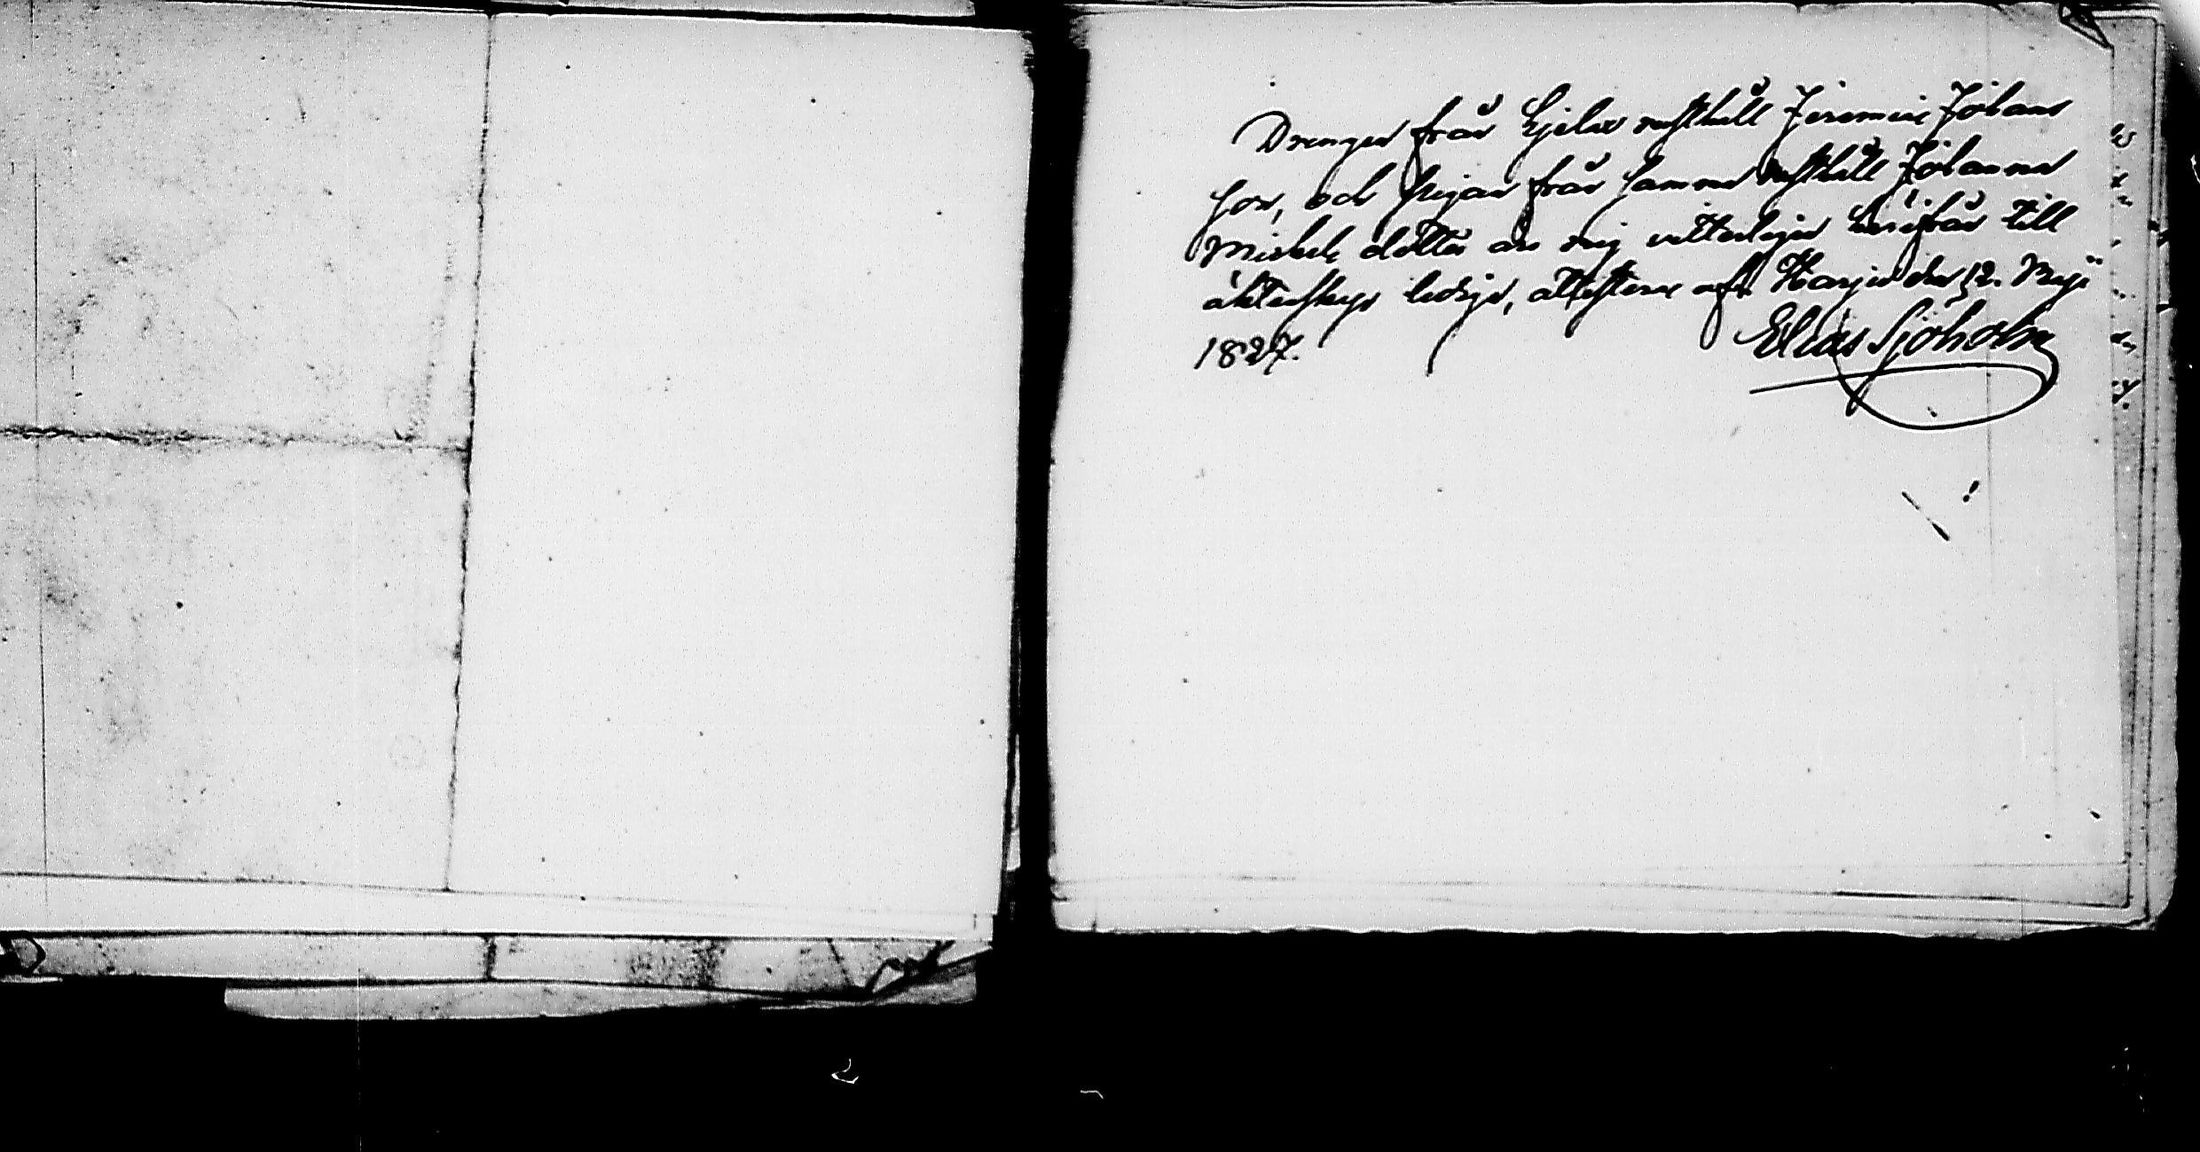 Drengen från Kjele rusthåll Jeremias Johans
son, och pigan från samma rusthåll Johanna
Michels dotter äro mig vitterligen härifrån till
äktenskap ledige, attesterar af Harju den 12. Maji
1827.
Elias Sjöholm